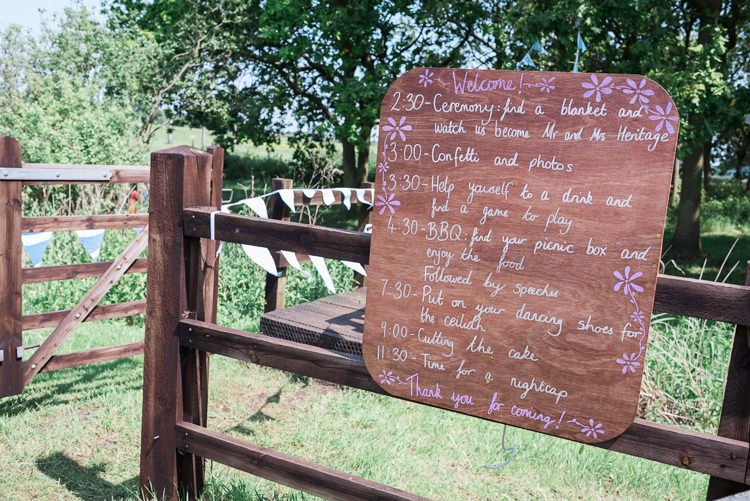 Welcome!
2:30 - Ceremony: find a blanket and
watch us become Mr and Ms Heritage
3:00 - Confetti and photos
3:30 - Help yourself to a drink and
find a game to play
4:30 - BBQ: find your picnic box and
enjoy the food
Followed by speeches
7:30 - Put on your dancing shoes for
the ceilidh
9:00 - Cutting the cake
11:30 - Time for a nightcap
Thank you for coming!